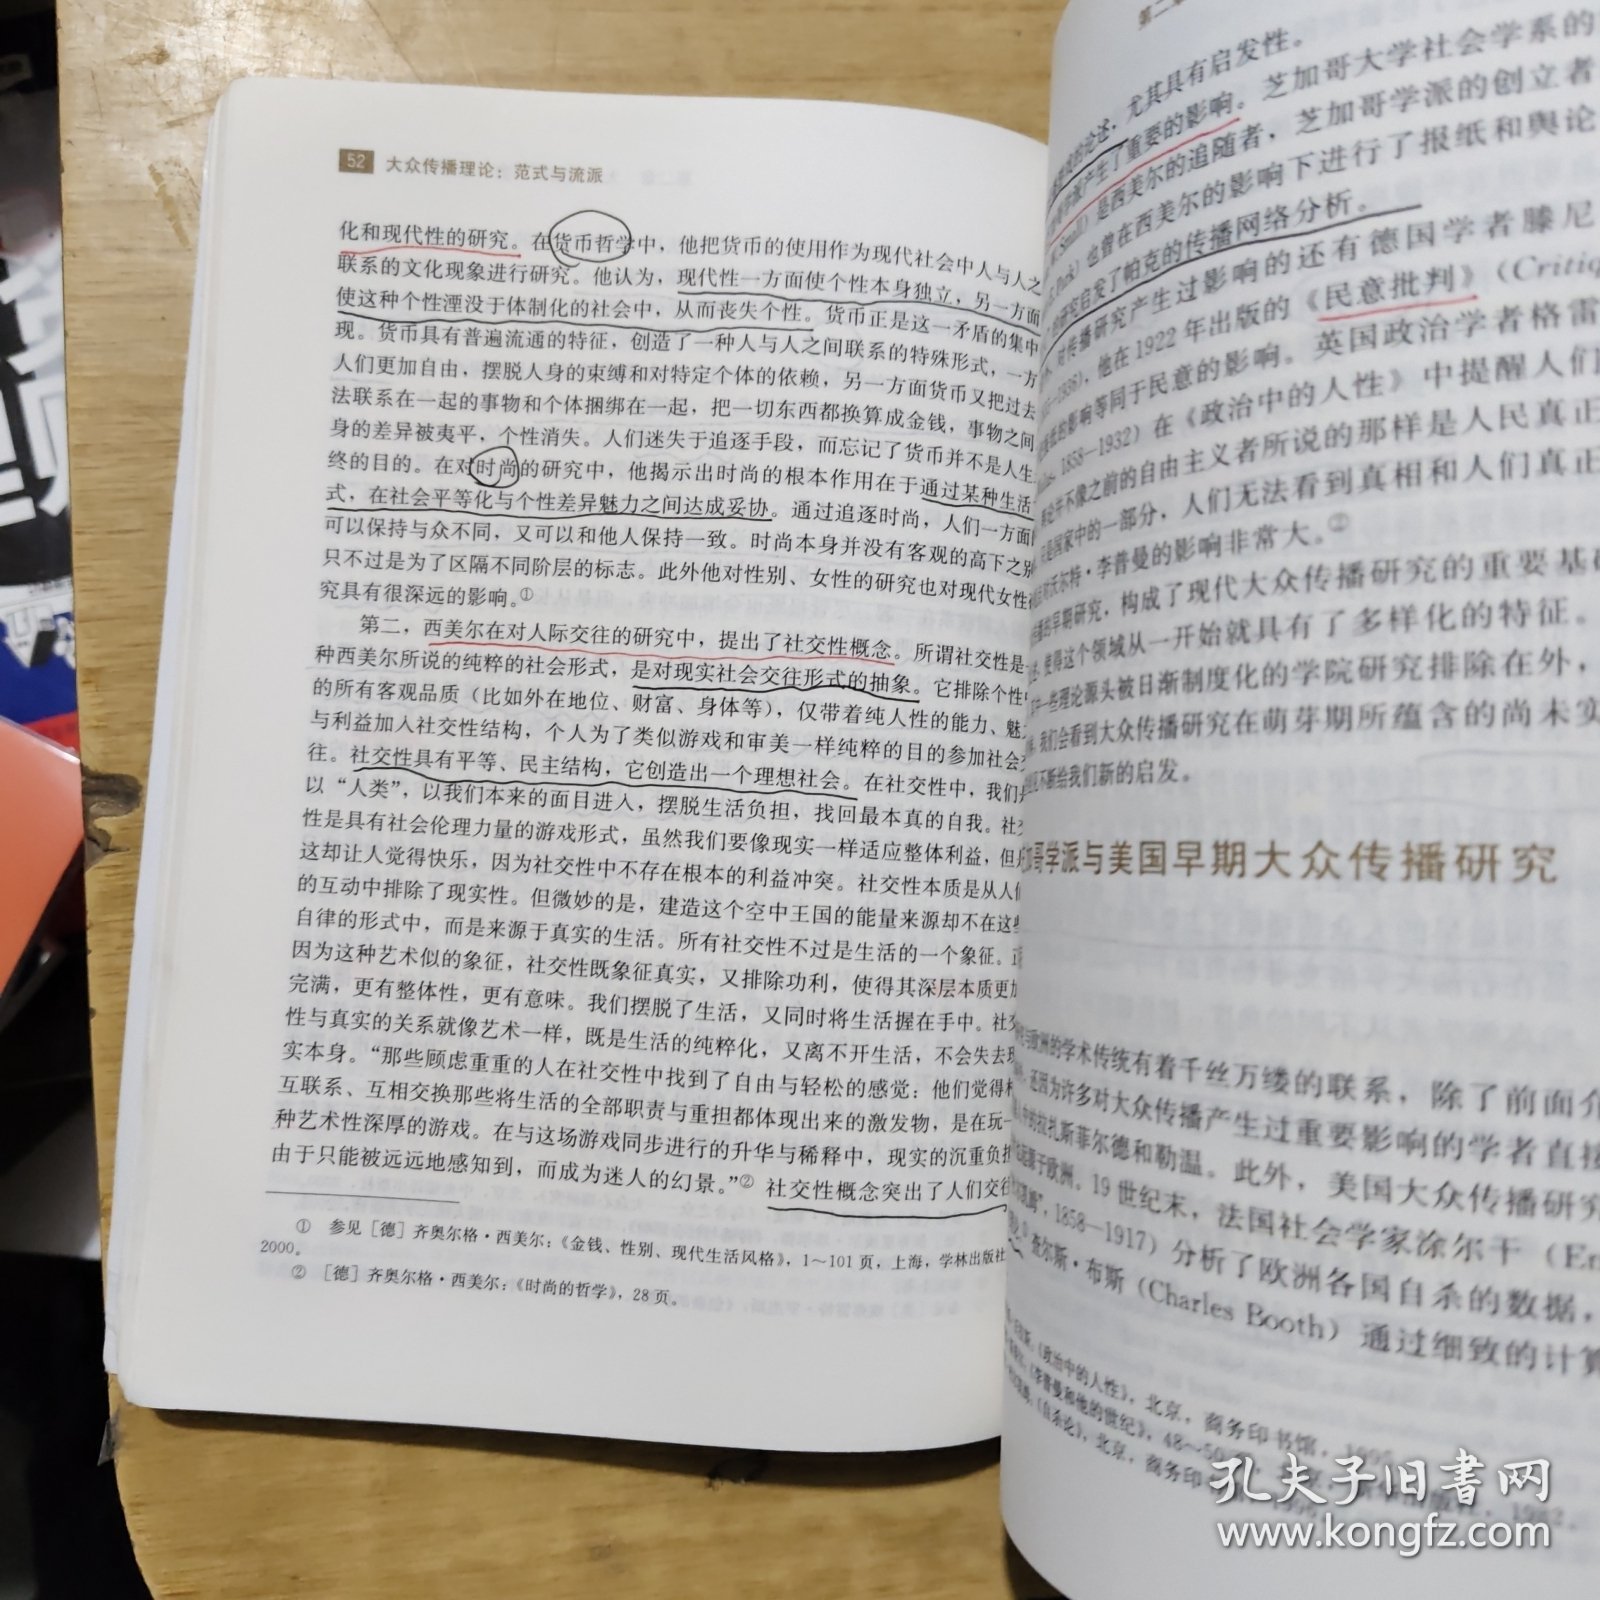 52 大众传播理论：范式与流派
化和现代性的研究。在货币哲学中，他把货币的使用作为现代社会中人与人之
联系的文化现象进行研究。他认为，现代性一方面使个性本身独立，另一方面
使这种个性湮没于体制化的社会中，从而丧失个性。货币正是这一矛盾的集中
现。货币具有普遍流通的特征，创造了一种人与人之间联系的特殊形式，一方
人们更加自由，摆脱人身的束缚和对特定个体的依赖，另一方面货币又把过去
法联系在一起的事物和个体捆绑在一起，把一切东西都换算成金钱，事物之间
身的差异被夷平，个性消失。人们迷失于追逐手段，而忘记了货币并不是人生
终的目的。在对时尚的研究中，他揭示出时尚的根本作用在于通过某种生活
式，在社会平等化与个性差异魅力之间达成妥协。通过追逐时尚，人们一方面
可以保持与众不同，又可以和他人保持一致。时尚本身并没有客观的高下之别
只不过是为了区隔不同阶层的标志。此外他对性别、女性的研究也对现代女性
究具有很深远的影响。①
第二，西美尔在对人际交往的研究中，提出了社交性概念。所谓社交性是
种西美尔所说的纯粹的社会形式，是对现实社会交往形式的抽象。它排除个性
的所有客观品质（比如外在地位、财富、身体等），仅带着纯人性的能力、魅
与利益加入社交性结构，个人为了类似游戏和审美一样纯粹的目的参加社会
往。社交性具有平等、民主结构，它创造出一个理想社会。在社交性中，我们
以“人类”，以我们本来的面目进入，摆脱生活负担，找回最本真的自我。社
性是具有社会伦理力量的游戏形式，虽然我们要像现实一样适应整体利益，但
这却让人觉得快乐，因为社交性中不存在根本的利益冲突。社交性本质是从人们
的互动中排除了现实性。但微妙的是，建造这个空中王国的能量来源却不在这些
自律的形式中，而是来源于真实的生活。所有社交性不过是生活的一个象征。正
因为这种艺术似的象征，社交性既象征真实，又排除功利，使得其深层本质更加
完满，更有整体性，更有意味。我们摆脱了生活，又同时将生活握在手中。社交
性与真实的关系就像艺术一样，既是生活的纯粹化，又离不开生活，不会失去现
实本身。“那些顾虑重重的人在社交性中找到了自由与轻松的感觉：他们觉得相
互联系、互相交换那些将生活的全部职责与重担都体现出来的激发物，是在玩一
种艺术性深厚的游戏。在与这场游戏同步进行的升华与稀释中，现实的沉重负担
由于只能被远远地感知到，而成为迷人的幻景。”② 社交性概念突出了人们交往
① 参见［德］齐奥尔格·西美尔：《金钱、性别、现代生活风格》，1～101页，上海，学林出版社
2000。
② ［德］齐奥尔格·西美尔：《时尚的哲学》，28页。
的论述，尤其具有启发性。
产生了重要的影响。芝加哥大学社会学系的
Small）是西美尔的追随者，芝加哥学派的创立者
Park）也曾在西美尔的影响下进行了报纸和舆论
的研究启发了帕克的传播网络分析。
对传播研究产生过影响的还有德国学者滕尼
1936），他在1922年出版的《民意批判》（Critiq
的影响等同于民意的影响。英国政治学者格雷
1858—1932）在《政治中的人性》中提醒人们
并不像之前的自由主义者所说的那样是人民真正
是国家中的一部分，人们无法看到真相和人们真正
对沃尔特·李普曼的影响非常大。②
的早期研究，构成了现代大众传播研究的重要基
使得这个领域从一开始就具有了多样化的特征。
一些理论源头被日渐制度化的学院研究排除在外，
我们会看到大众传播研究在萌芽期所蕴含的尚未实
不断给我们新的启发。
加哥学派与美国早期大众传播研究
与欧洲的学术传统有着千丝万缕的联系，除了前面介
还因为许多对大众传播产生过重要影响的学者直接
中的拉扎斯菲尔德和勒温。此外，美国大众传播研究
源于欧洲。19世纪末，法国社会学家涂尔干（Em
1858—1917）分析了欧洲各国自杀的数据，
查尔斯·布斯（Charles Booth）通过细致的计算
《政治中的人性》，北京，商务印书馆，1995
《李普曼和他的世纪》，48～50
《自杀论》，北京，商务印
孔夫子旧书网
www.kongfz.com